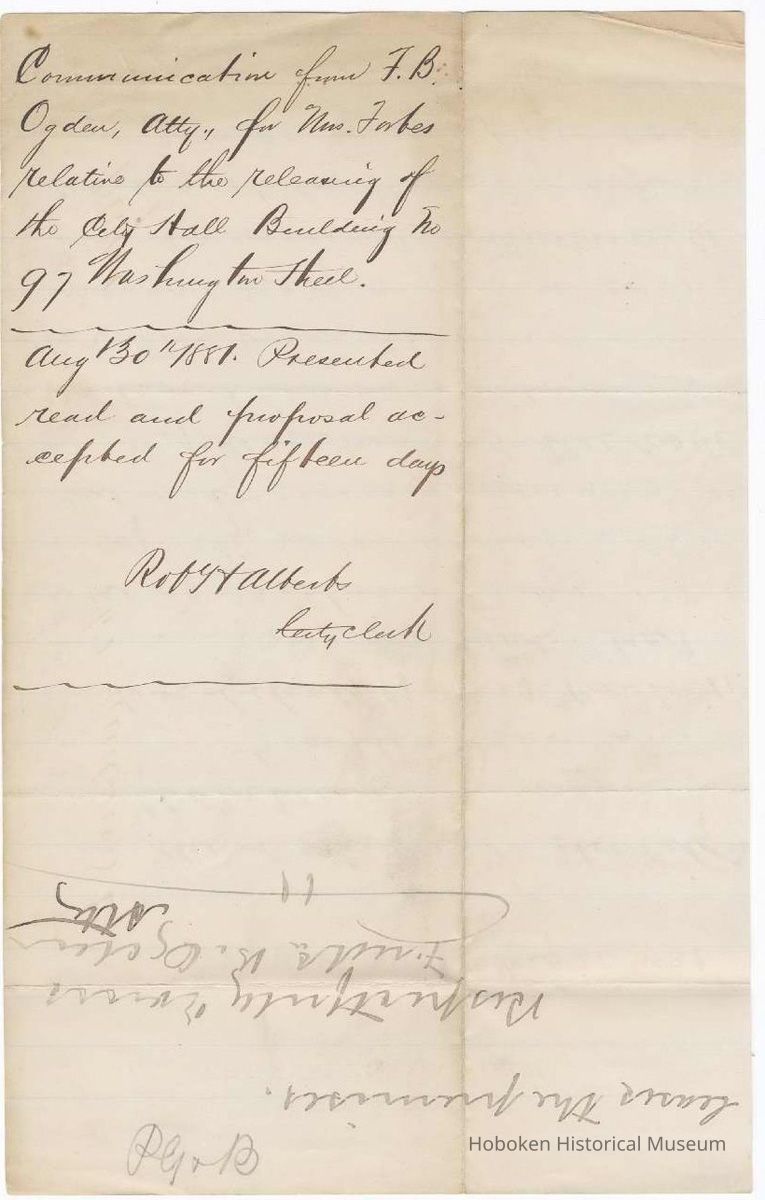 Communication from F. B.
Ogden, Atty., for Mrs. Forbes
relative to the releasing of
the City Hall Building No
97 Washington Street.
Aug 30th 1881. Presented
read and proposal ac-
cepted for fifteen days
Robt H Alberts
City Clerk
lease the premises.
Respectfully Yours
Fredk B. Ogden
Atty
Hoboken Historical Museum